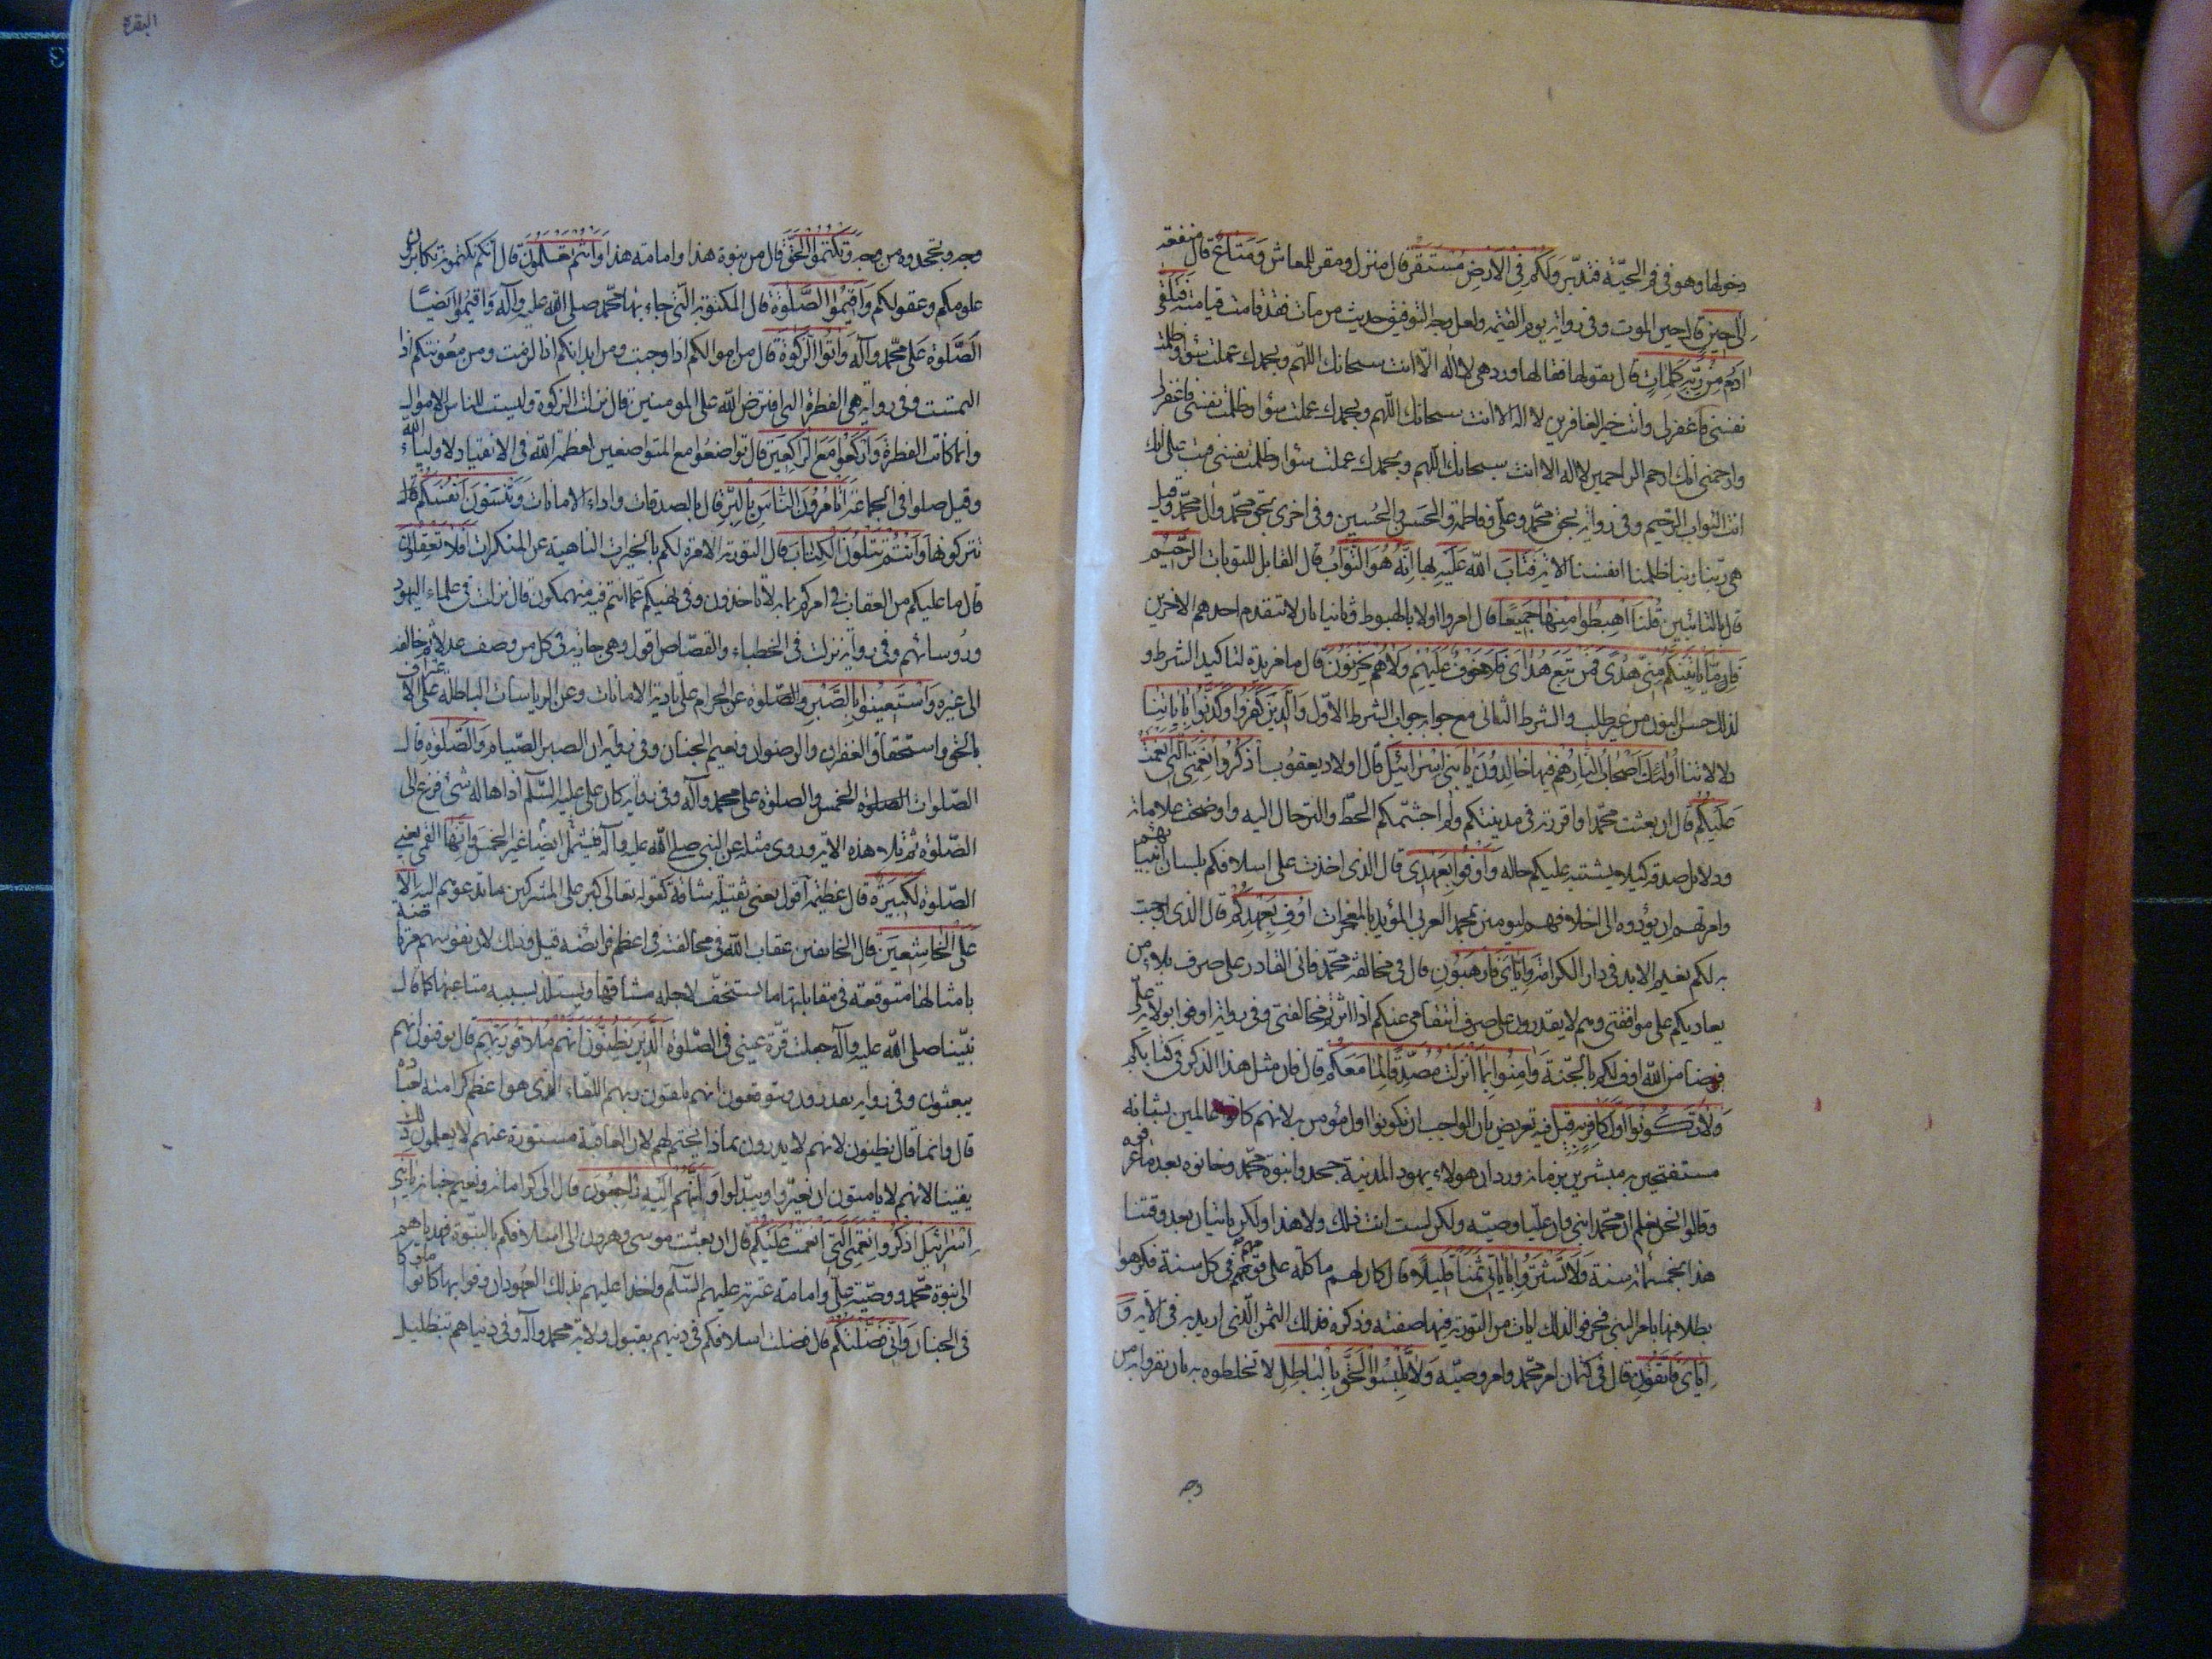 دخولها وهو في فم الحيّة فتدبّر وَلَكُمْ فِي الْاَرْضِ مُسْتَقَرٌّ قال منزل ومقر للمعاش وَمَتَاعٌ قال منفعة
اِلٰى حِينٍ قال حين الموت وفي رواية يوم القيٰمة ولعل وجه التوفيق حديث من مات فقد قامت قيامته فَتَلَقّٰى
اٰدَمُ مِنْ رَبِّهِ كَلِمَاتٍ قال يقولها فقالها ورد هي لا اله الّا انت سبحانك اللّهم وبحمدك عملت سوءا وظلمت
نفسي فاغفر لي وانت خير الغافرين لا اله الا انت سبحانك اللّهم وبحمدك عملت سوءا وظلمت نفسي فاغفر لي
وارحمني انك ارحم الراحمين لا اله الا انت سبحانك اللّهم وبحمدك عملت سوءا وظلمت نفسي فتب علي انك
انت التواب الرّحيم وفي رواية بحق محمّد وعلي وفاطمة والحَسَن والحُسين وفي اخرى بحق محمّد وآل محمّد وقيل
هي ربّنا ربنا ظلمنا انفسنا الآية فَتَابَ اللّٰه عَلَيْهِ بها اِنَّهُ هُوَ التَّوَّابُ قال القابل للتوبات الرَّحِيمُ
قال بالتائبين قُلْنَا اهْبِطُوا مِنْهَا جَمِيعًا قال امروا اولا بالهبوط وثانيا بان لا يتقدم احدهم الآخرين
فَاِمَّا يَأْتِيَنَّكُمْ مِنِّي هُدًى فَمَنْ تَبِعَ هُدَايَ فَلَا خَوْفٌ عَلَيْهِمْ وَلَا هُمْ يَحْزَنُونَ قال ما مزيدة لتاكيد الشرط و
لذلك حسن النون من غير طلب والشرط الثاني مع جوابه جواب الشرط الاوّل وَالَّذِينَ كَفَرُوا وَكَذَّبُوا بِاٰيَاتِنَا
دلالاتنا اُولٰئِكَ اَصْحَابُ النَّارِ هُمْ فِيهَا خَالِدُونَ يَا بَنِي اِسْرَائِيلَ قال اولاد يعقوب اذْكُرُوا نِعْمَتِيَ الَّتِي اَنْعَمْتُ
عَلَيْكُمْ قال ان بعثت محمّدا واقررته في مدينتكم ولم اجشّمكم الحطّ والترحال اليه واوضحت علاماته
ودلائل صدقه كيلا يشتبه عليكم حاله وَاَوْفُوا بِعَهْدِي قال الذي اخذت على اسلافكم بلسان انبيائهم
وامرتهم ان يؤدوه الى اخلافهم ليومنن بمحمد العربي المؤيد بالمعجزات اُوفِ بِعَهْدِكُمْ قال الذي اوجبت
به لكم نعيم الابد في دار الكرامة وَاِيَّايَ فَارْهَبُونِ قال في مخالفة محمّد فاني القادر على صرف بلاء من
يعاديكم على موافقتي وهم لا يقدرون على صرف انتقامي عنكم اذا اثرتم مخالفتي وفي رواية اوفوا بولاية علي
فرضا من اللّٰه اوف لكم بالجنّة وَاٰمِنُوا بِمَا اَنْزَلْتُ مُصَدِّقًا لِمَا مَعَكُمْ قال فان مثل هذا الذكر في كتابكم
وَلَا تَكُونُوا اَوَّلَ كَافِرٍ بِهِ قيل فيه تعريض بان الواجب ان تكونوا اول مؤمن به لانهم كانوا عالمين بشانه
مستفتحين به مبشرين بزمانه ورد ان هولاء يهود المدينة جحدوا نبوة محمّد وخانوه بعد ما عرفوه
وقالوا نحن نعلم ان محمّدا نبي وان عليّا وصيّه ولكن لست انت ذلك ولا هذا ولكن ياتيان بعد وقتنا
هذا بخمسمائة سنة وَلَا تَشْتَرُوا بِاٰيَاتِي ثَمَنًا قَلِيلًا قال كان لهم ماكلة على قومهم في كل سنة فكرهوا
بطلانها بامر النبي فحرفوا لذلك ايات من التورية فيها صفته وذكره فذلك الثمن الّذي اريد به في الآية وَ
اِيَّايَ فَاتَّقُونِ قال في كتمان امر محمّد وامر وصيّه وَلَا تَلْبِسُوا الْحَقَّ بِالْبَاطِلِ لا تخلطوه به بان تقروا به من
وجه
البقرة
وجه وتجحدوه من وجه وَتَكْتُمُوا الْحَقَّ قال من نبوة هذا وامامة هذا وَاَنْتُمْ تَعْلَمُونَ قال انكم تكتمونه تكابرون
علومكم وعقولكم وَاَقِيمُوا الصَّلٰوةَ قال المكتوبة الّتي جاء بها محمّد صلى اللّٰه عليه وآله وَاقيمُوا ايضًا
الصَّلٰوة على محمّد وآله وَاٰتُوا الزَّكٰوةَ قال من اموالكم اذا وجبت ومن ابدانكم اذا لزمت ومن معُونتكم اذا
التمست وفي رواية هي الفطرة التي افترض اللّٰه على المومنين قال نزلت الزكوة وليست للناس الاموال
وانما كانت الفطرة وَارْكَعُوا مَعَ الرَّاكِعِينَ قال تواضعُوا مع المتواضعين لعظمة اللّٰه في الانقياد لاولياء اللّٰه
وقيل صلوا في الجماعة اَتَأْمُرُونَ النَّاسَ بِالْبِرِّ قال بالصدقات واداء الامانات وَتَنْسَوْنَ اَنْفُسَكُمْ قال
تتركونها وَاَنْتُمْ تَتْلُونَ الْكِتَابَ قال التورية الآمرة لكم بالخيرات الناهية عن المنكرات اَفَلَا تَعْقِلُونَ
قال ما عليكم من العقاب في امركم بما به لا تاخذون وفي نهيكم عمّا انتم فيه منهمكون قال نزلت في علماء اليهود
ورُوسائهم وفي رواية نزلت في الخطباء والقصّاص اقول وهي جارية في كل من وصف عدلا ثم خالفه
الى غيره وَاسْتَعِينُوا بِالصَّبْرِ وَالصَّلوة عن الحرام على تادية الامانات وعن الرياسات الباطلة على الاعتراف
بالحق واستحقاق الغفران والرضوان ونعيم الجنان وفي رواية ان الصبر الصّيام وَالصَّلٰوةِ قال
الصّلوات الخمس والصلوة على محمد وآله وفي رواية كان علي عليه السّلام اذا هاله شئ فزع الى
الصّلوة ثم تلا هذه الآية وروى مثله عن النبي صلى اللّٰه عليه وآله فيشمل ايضا غير الخمس وَاِنَّهَا القمي يعني
الصّلوة لَكَبِيرَةٌ قال عظيمة اقول يعني ثقيلة شاقة كقوله تعالى كبر على المشركين ما تدعوهم اليه اِلَّا
عَلَى الْخَاشِعِينَ قال الخائفين عقاب اللّٰه في مخالفته في اعظم فرائضه قيل وذلك لان نفوسهم مرتاضة
بامثالها متوقعة في مقابلتها ما يستخف لاجله مشاقها ويستلذ بسببه متاعبها كما قال
نبيّنا صلى اللّٰه عليه وآله جعلت قرّة عيني في الصّلوة الَّذِينَ يَظُنُّونَ اَنَّهُمْ مُلَاقُوا رَبِّهِمْ قال يوقنون انهم
يبعثون وفي رواية يقدرون ويتوقعون انهم يلقون ربهم اللقاء الذي هو اعظم كرامته لعباده
قال وانما قال يظنون لانهم لا يدرون بماذا يختم لهم لان العاقبة مستورة عنهم لا يعلمون ذلك
يقينا لانهم لا يامنون ان يغيّروا ويبدّلوا وَاَنَّهُمْ اِلَيْهِ رَاجِعُونَ قال الى كراماته ونعيم جناته يَا بَنِي
اِسْرَائِيلَ اذْكُرُوا نِعْمَتِيَ الَّتِي اَنْعَمْتُ عَلَيْكُمْ قال ان بعثت موسى وهرون الى اسلافكم بالنبّوة فهدياهم
الى نبوة محمّد ووصيّه علي وامامة عترته عليهم السّلام واخذا عليهم بذلك العهود ان وفوا بها كانوا ملوكا
في الجنان وَاَنِّي فَضَّلْتُكُمْ قال فضلت اسلافكم في دينهم بقبول ولاية محمد وآله وفي دنياهم بتظليل